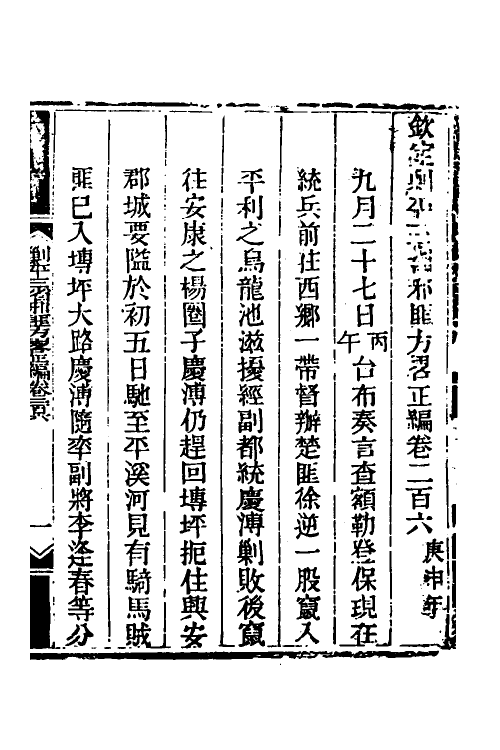 欽定剿平三省邪匪方畧正編卷二百六 庚申年
九月二十七日丙午台布奏言查額勒登保現在
統兵前往西鄉一帶督辦楚匪徐逆一股竄入
平利之烏龍池滋擾經副都統慶溥剿敗後竄
往安康之楊圈子慶溥仍趕回塼坪扼住興安
郡城要隘於初五日馳至平溪河見有騎馬賊
匪已入塼坪大路慶溥隨率副將李逢春等分
剿平三省邪匪方畧正編卷二百六 一